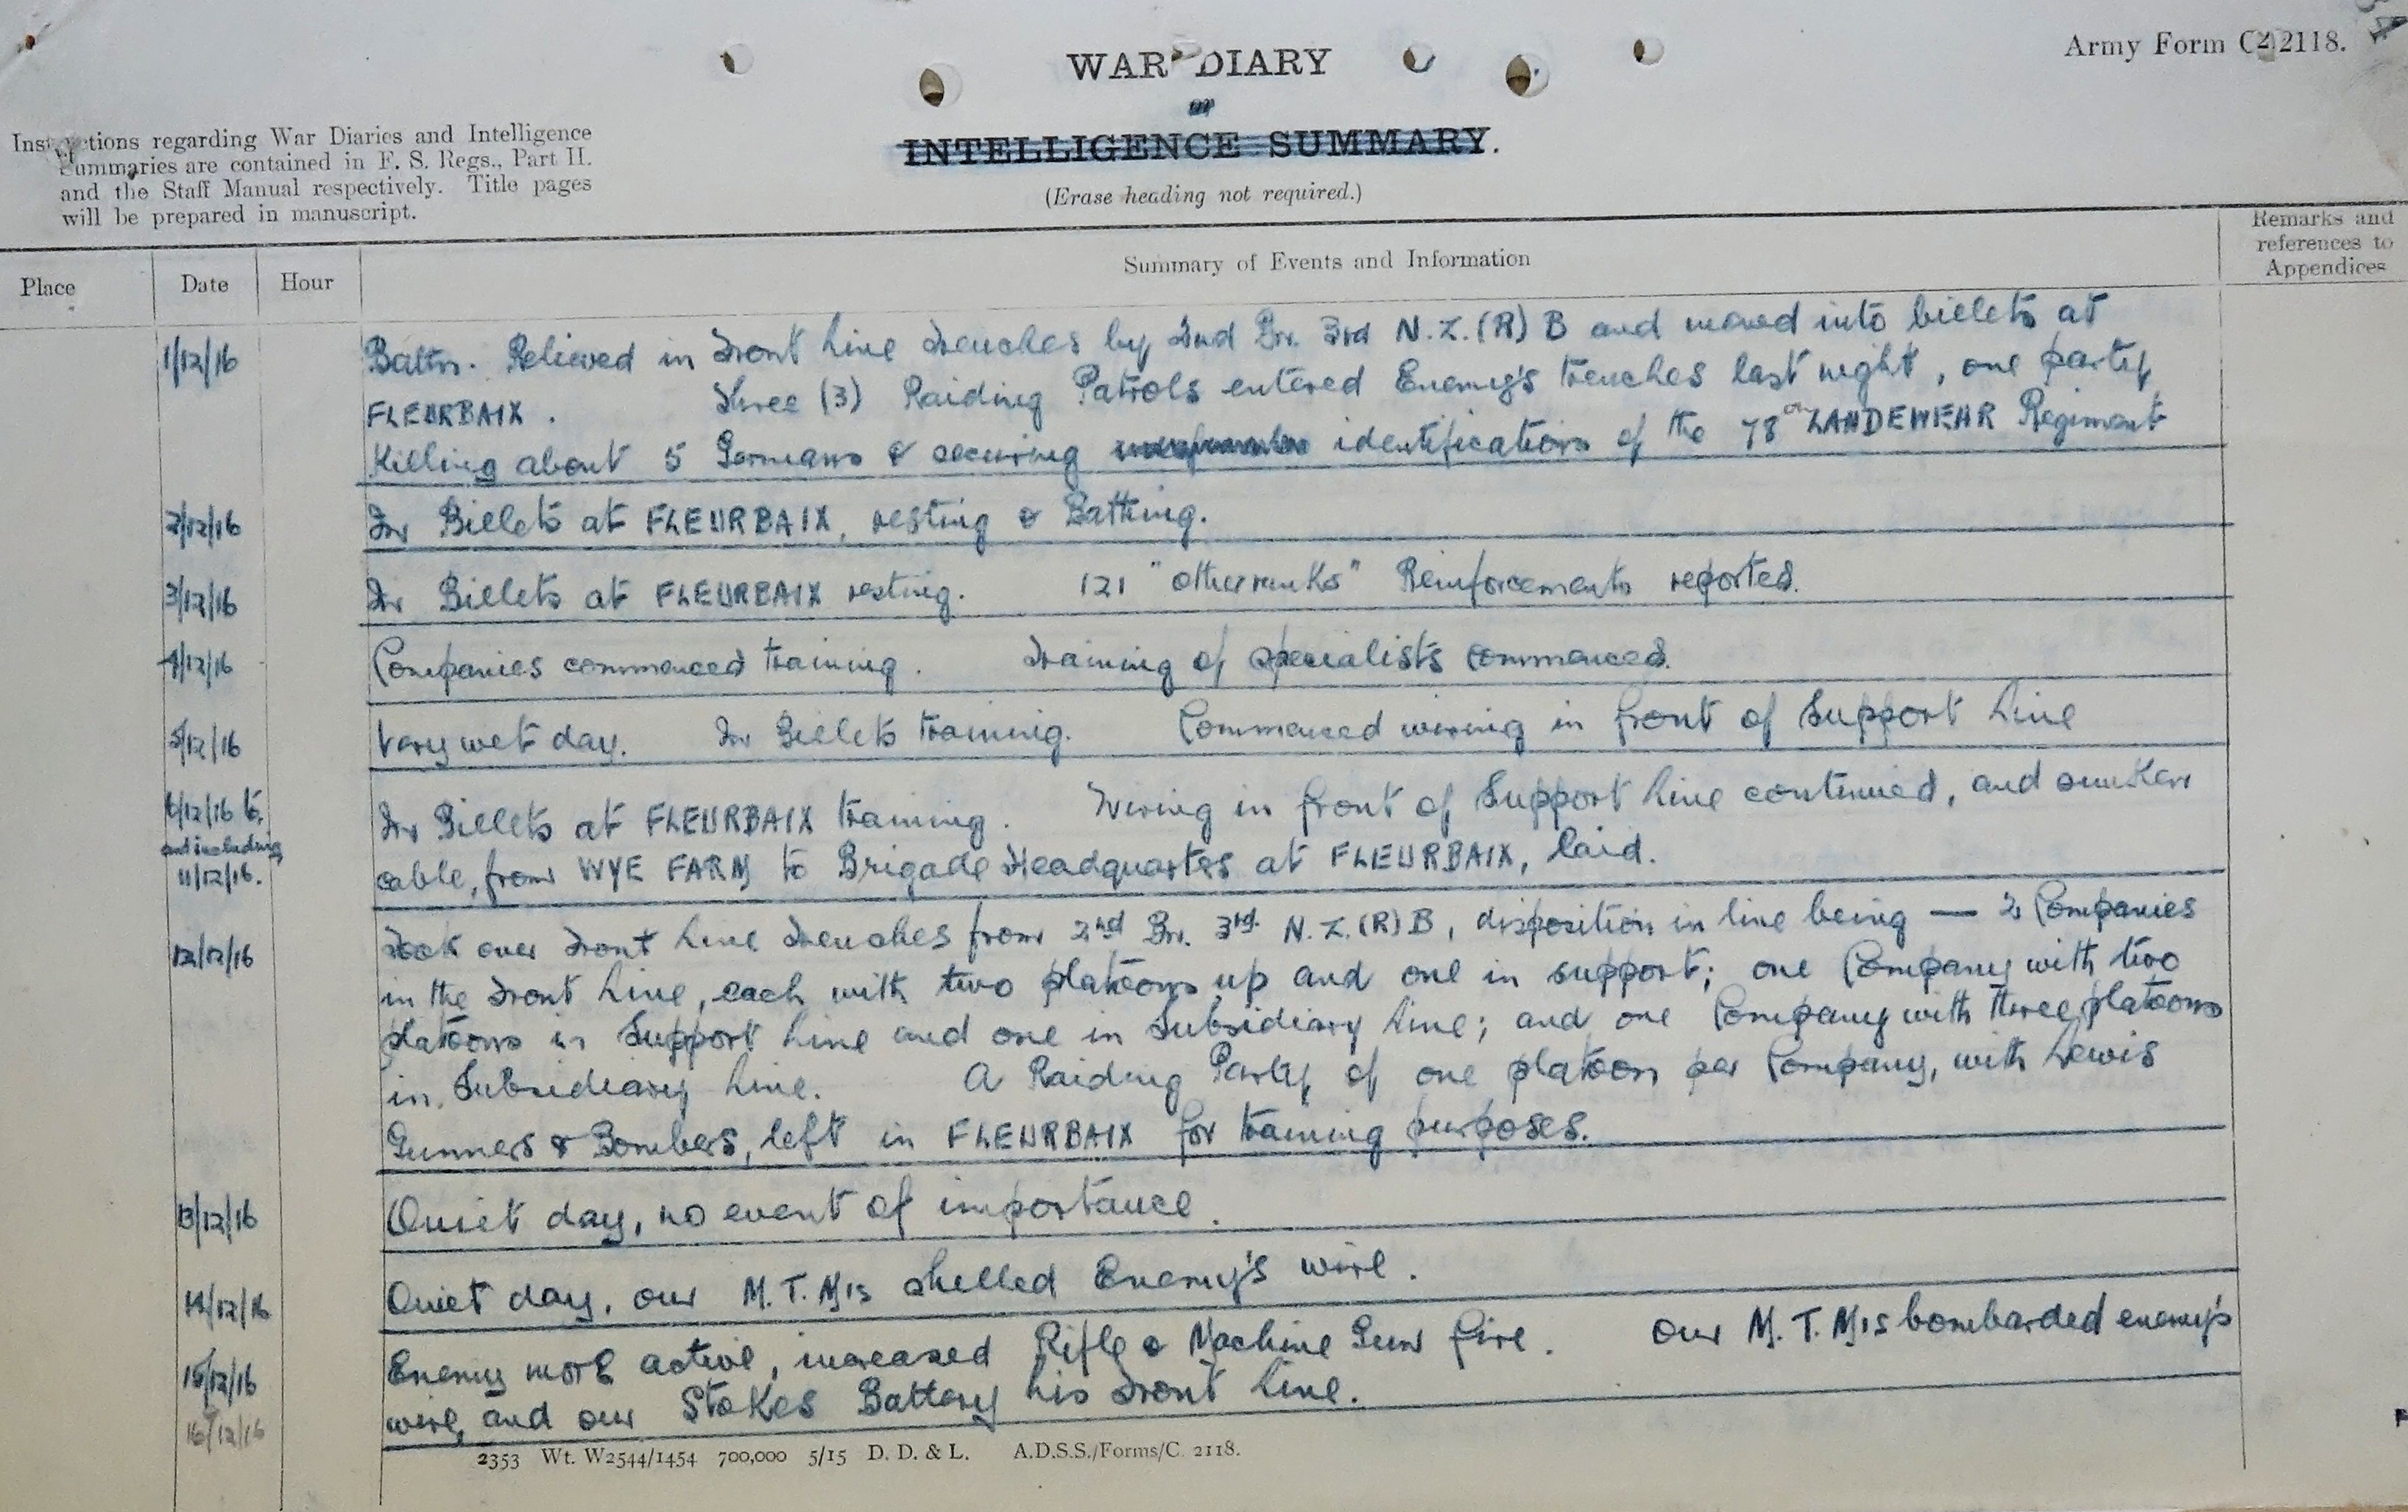 Army Form C. 2118.
WAR DIARY
or
INTELLIGENCE SUMMARY.
(Erase heading not required.)
Instructions regarding War Diaries and Intelligence
Summaries are contained in F. S. Regs., Part II.
and the Staff Manual respectively. Title pages
will be prepared in manuscript.
Place Date Hour Summary of Events and Information Remarks and references to Appendices
1/12/16 Battn. Relieved in Front Line Trenches by 2nd Bn. 3rd N.Z.(R) B and moved into billets at
FLEURBAIX. Three (3) Raiding Patrols entered Enemy's trenches last night, one party
Killing about 5 Germans & securing identification of the 78th LANDEWEHR Regiment
2/12/16 In Billets at FLEURBAIX, resting & Bathing.
3/12/16 In Billets at FLEURBAIX resting. 121 "other ranks" Reinforcements reported.
4/12/16 Companies commenced training. Training of specialists commenced.
5/12/16 Very wet day. In Billets training. Commenced wiring in front of Support Line
6/12/16 to In Billets at FLEURBAIX training. Wiring in front of Support Line continued, and sunken
and including
11/12/16. cable, from WYE FARM to Brigade Headquarters at FLEURBAIX, laid.
12/12/16 Took over Front Line Trenches from 2nd Bn. 3rd N.Z.(R)B, disposition in line being — 2 Companies
in the Front Line, each with two platoons up and one in support; one Company with two
platoons in Support Line and one in Subsidiary Line; and one Company with three platoons
in Subsidiary Line. A Raiding Party of one platoon per Company, with Lewis
Gunners & Bombers, left in FLEURBAIX for training purposes.
13/12/16 Quiet day, no event of importance.
14/12/16 Quiet day, our M.T.M's shelled Enemy's wire.
15/12/16 Enemy more active, increased Rifle & Machine Gun fire. Our M.T.M's bombarded enemy's
wire, and our Stokes Battery his Front Line.
16/12/16
2353 Wt. W2544/1454 700,000 5/15 D. D. & L. A.D.S.S./Forms/C. 2118.